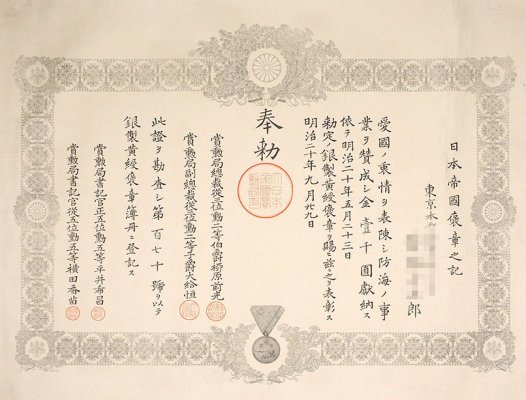 日本帝國褒章之記
東京
郎
愛國ノ衷情ヲ表陳シ防海ノ事
業ヲ賛成シ金壹千圓獻納ス
依テ明治二十年五月二十三日
勅定ノ銀製黄綬褒章ヲ賜ヒ茲ニ之ヲ表彰ス
明治二十年九月廿九日
奉勅
賞勲局總裁從三位勲二等伯爵柳原前光
賞勲局副總裁從三位勲二等子爵大給恒
此證ヲ勘査シ第百七十號ヲ以テ
銀製黄綬褒章簿册ニ登記ス
賞勲局書記官正五位勲五等平井希昌
賞勲局書記官從五位勲五等横田香苗